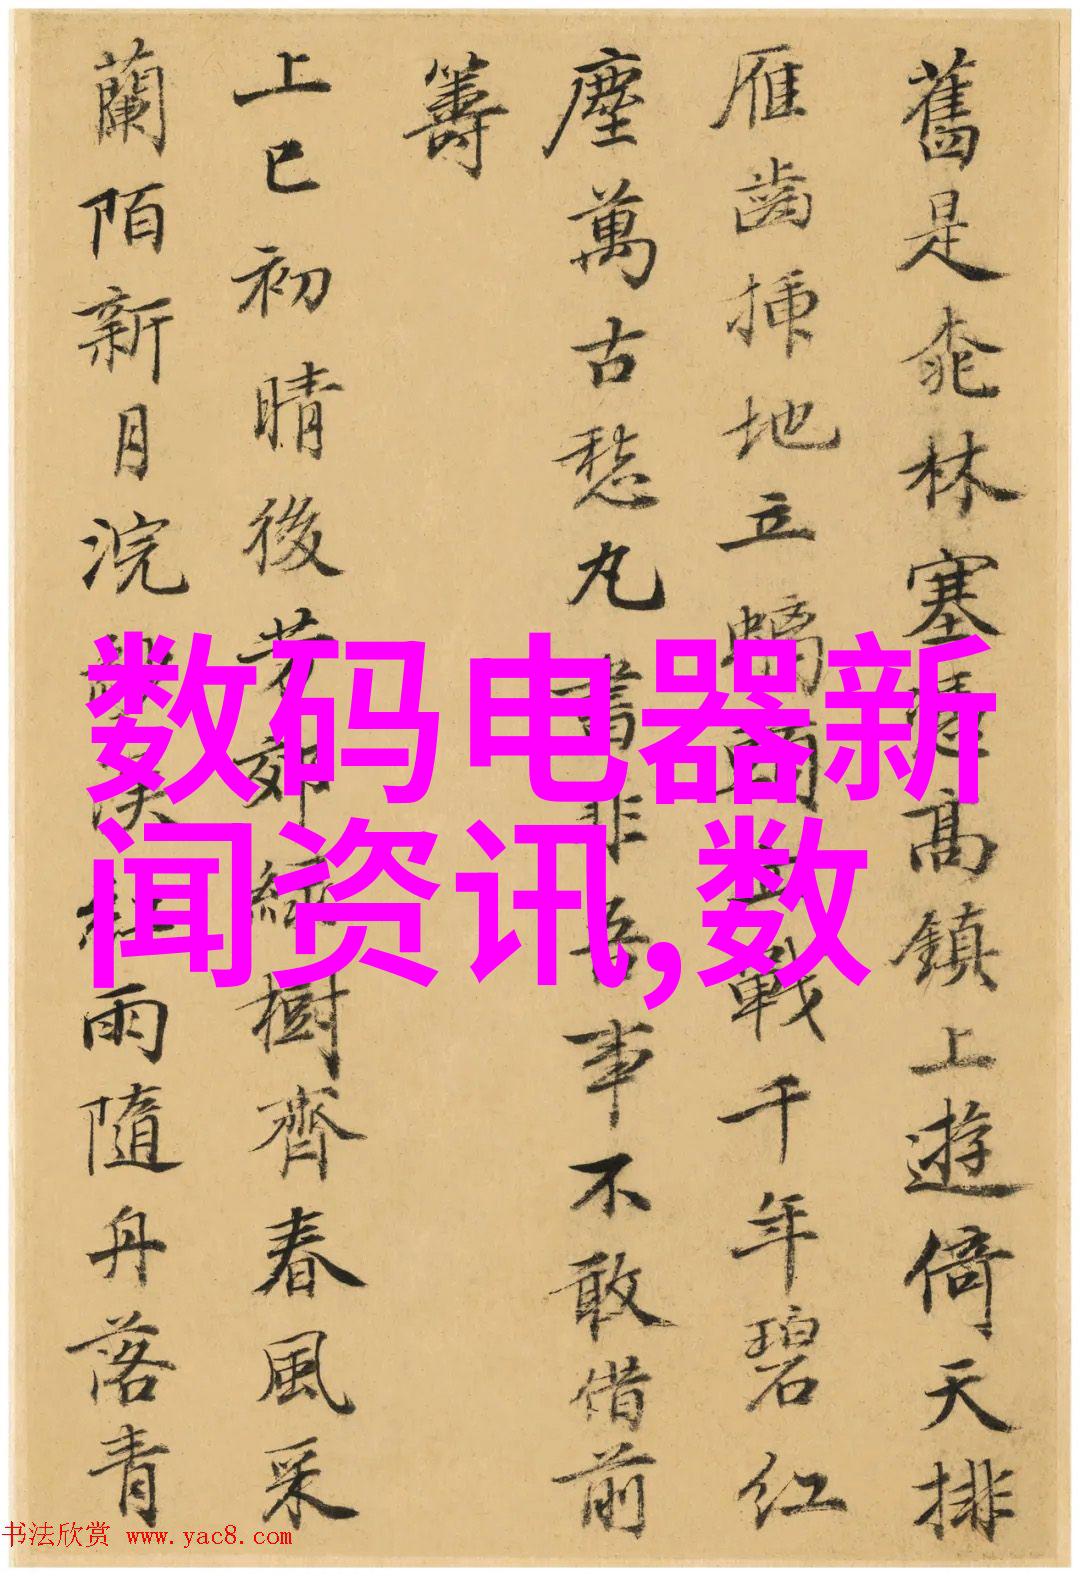 舊是桃林塞憑高鎮上遊倚天排
雁齒揷地立螭頭立戰千年碧紅
塵萬古愁丸書非吾事不敢借前
籌
上巳初晴後芳郊綠樹齊春風采
蘭陌新月浣
紅雨隨舟落青
数码电器新
闻资讯,数
书法欣赏 www.yac8.com